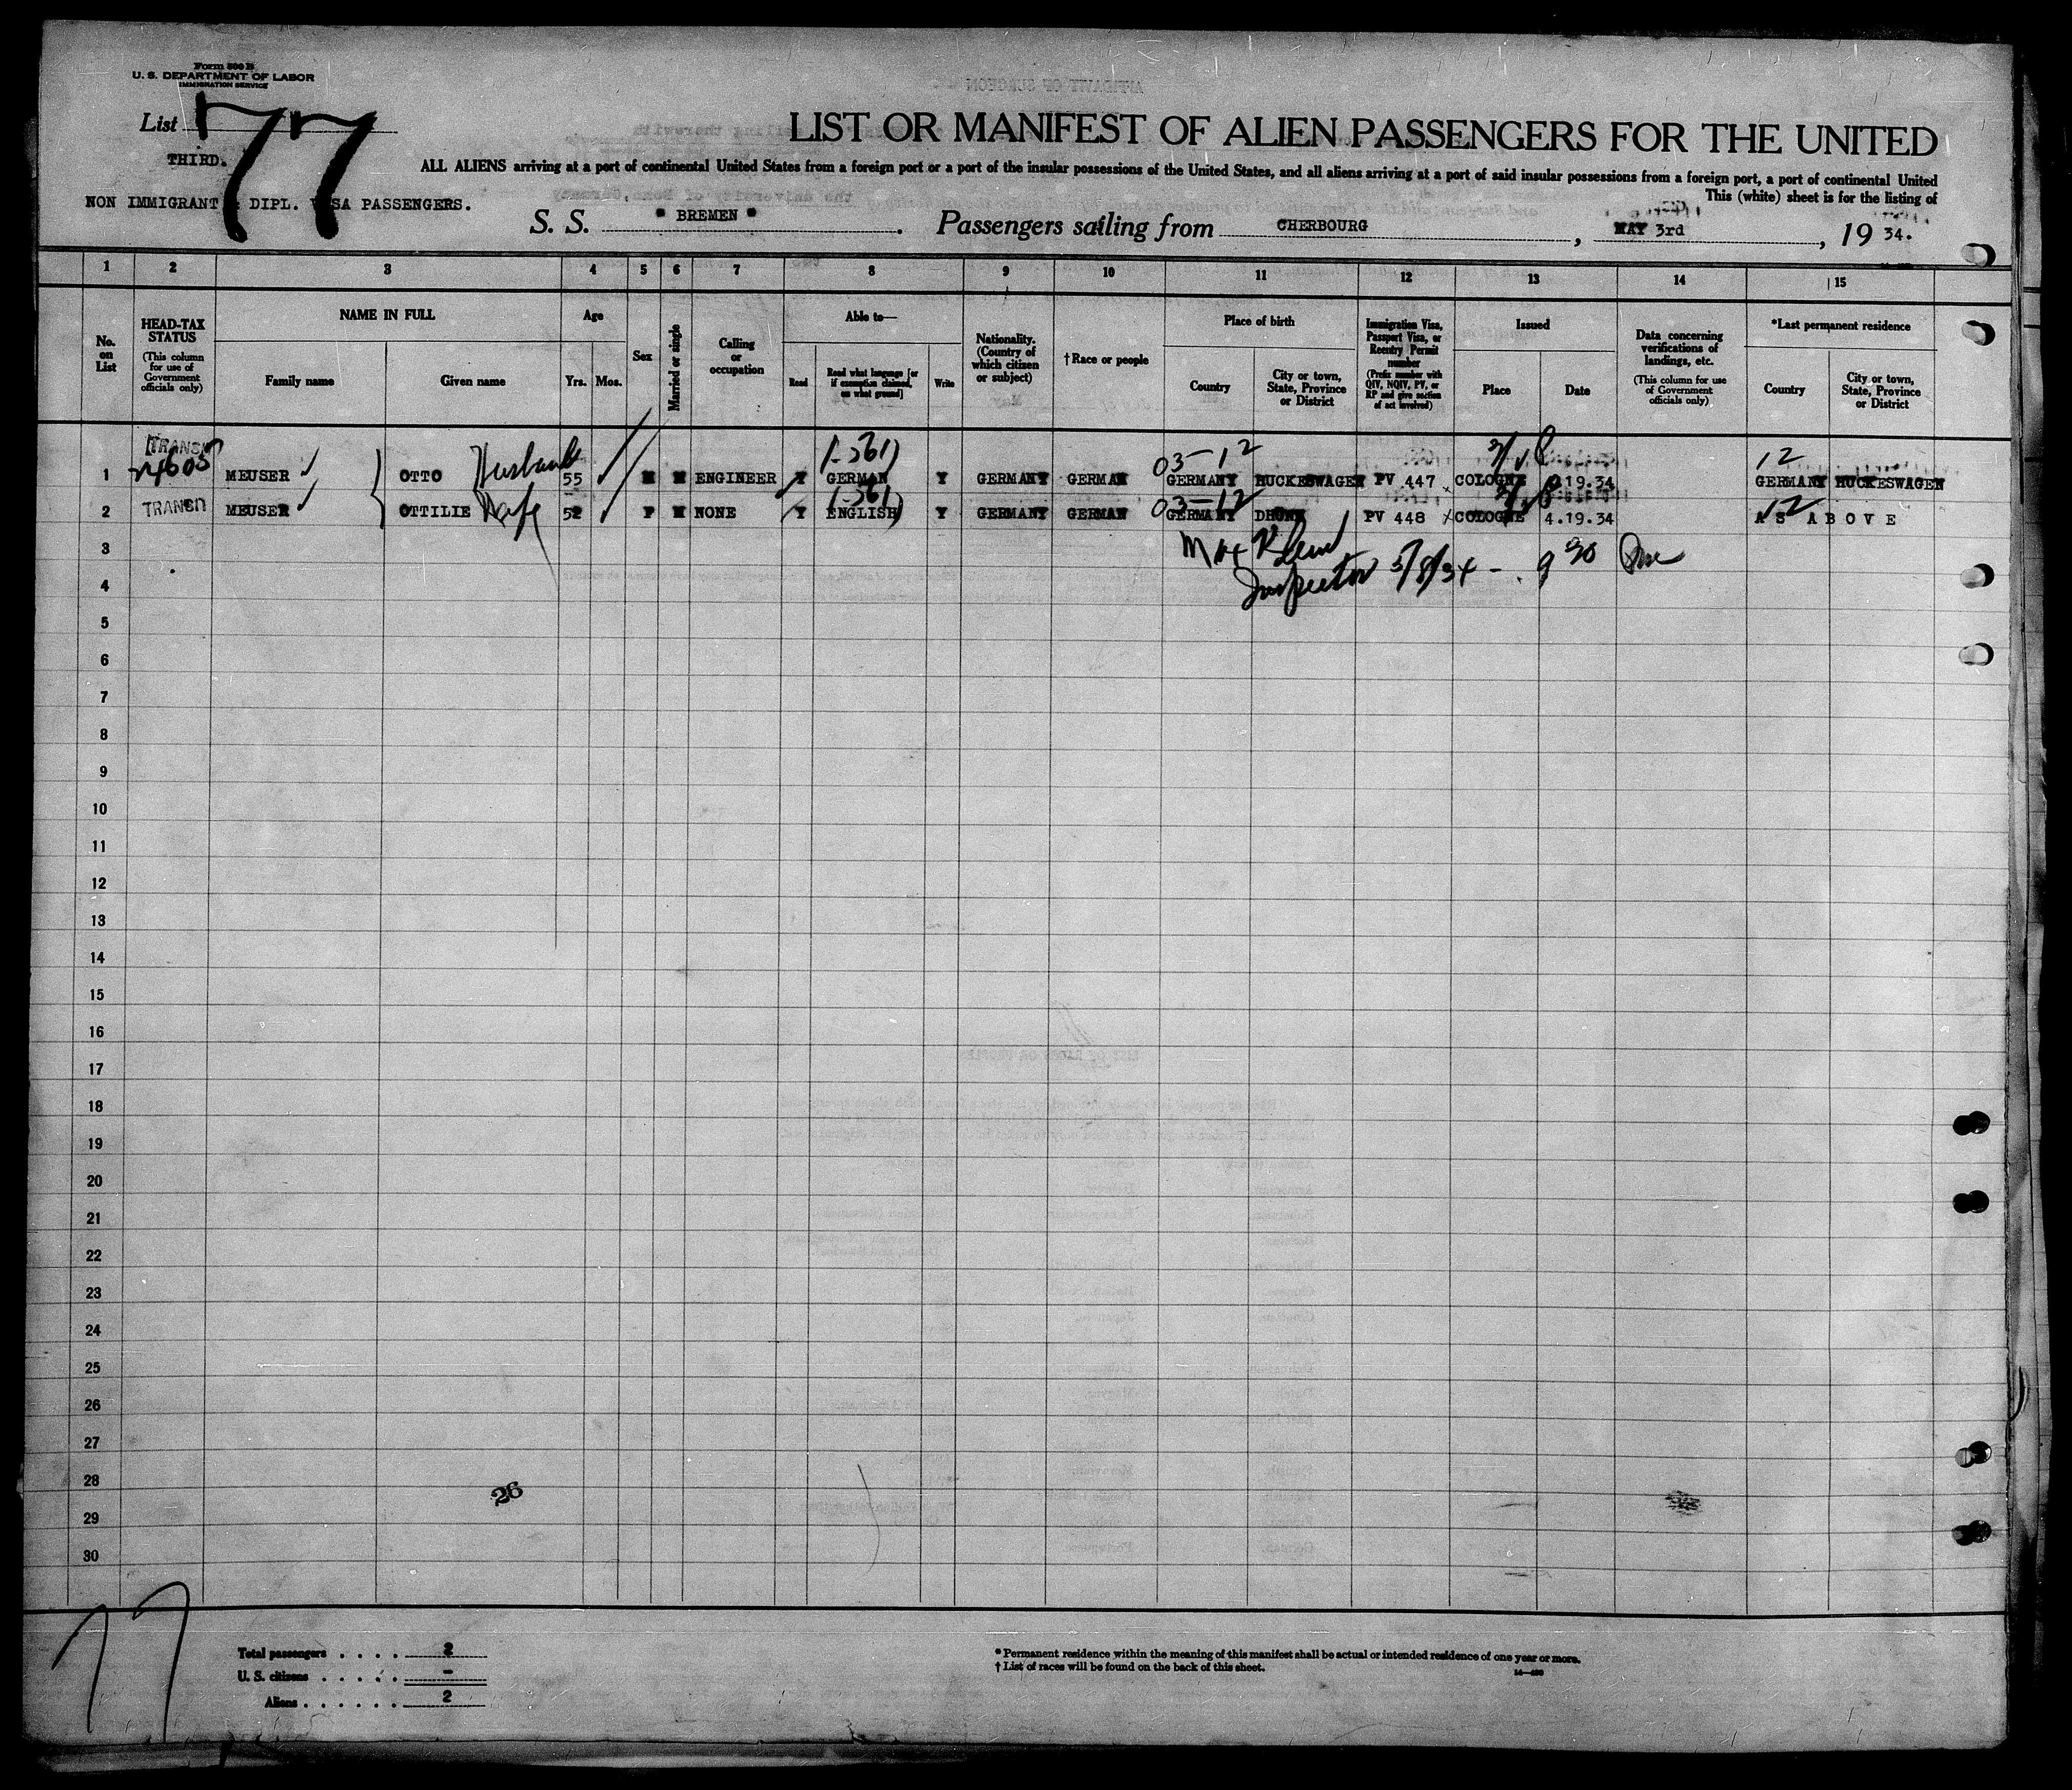 Form 500 B
U. S. DEPARTMENT OF LABOR
IMMIGRATION SERVICE
List 77
THIRD.
NON IMMIGRANT & DIPL. VISA PASSENGERS.
LIST OR MANIFEST OF ALIEN PASSENGERS FOR THE UNITED
ALL ALIENS arriving at a port of continental United States from a foreign port or a port of the insular possessions of the United States, and all aliens arriving at a port of said insular possessions from a foreign port, a port of continental United
This (white) sheet is for the listing of
S. S. " BREMEN " . Passengers sailing from CHERBOURG , MAY 3rd , 19 34.
1 2 3 4 5 6 7 8 9 10 11 12 13 14 15
No. on List
HEAD-TAX STATUS
(This column for use of Government officials only)
NAME IN FULL
Family name
Given name
Age
Yrs.
Mos.
Sex
Married or single
Calling or occupation
Able to—
Read
Read what language [or if exemption claimed, on what ground]
Write
Nationality. (Country of which citizen or subject)
†Race or people
Place of birth
Country
City or town, State, Province or District
Immigration Visa, Passport Visa, or Reentry Permit number
(Prefix number with QIV, NQIV, PV, or RP and give section of act involved)
Issued
Place
Date
Data concerning verifications of landings, etc.
(This column for use of Government officials only)
*Last permanent residence
Country
City or town, State, Province or District
TRANSIT 1-361) 03-12 12
1 MEUSER OTTO Husband 55 M M ENGINEER Y GERMAN Y GERMANY GERMAN GERMANY HUCKESWAGEN PV 447 COLOGNE 4.19.34 GERMANY HUCKESWAGEN
1-361) 03-12 12
2 TRANSIT MEUSER OTTILIE Wife 52 F M NONE Y ENGLISH Y GERMANY GERMAN GERMANY PV 448 COLOGNE 4.19.34 AS ABOVE
3
Inspector 5/8/34 - 9 30
4
5
6
7
8
9
10
11
12
13
14
15
16
17
18
19
20
21
22
23
24
25
26
27
28
26
29
30
77
Total passengers . . . . 2
U. S. citizens . . . . . -
Aliens . . . . . . 2
* Permanent residence within the meaning of this manifest shall be actual or intended residence of one year or more.
† List of races will be found on the back of this sheet.